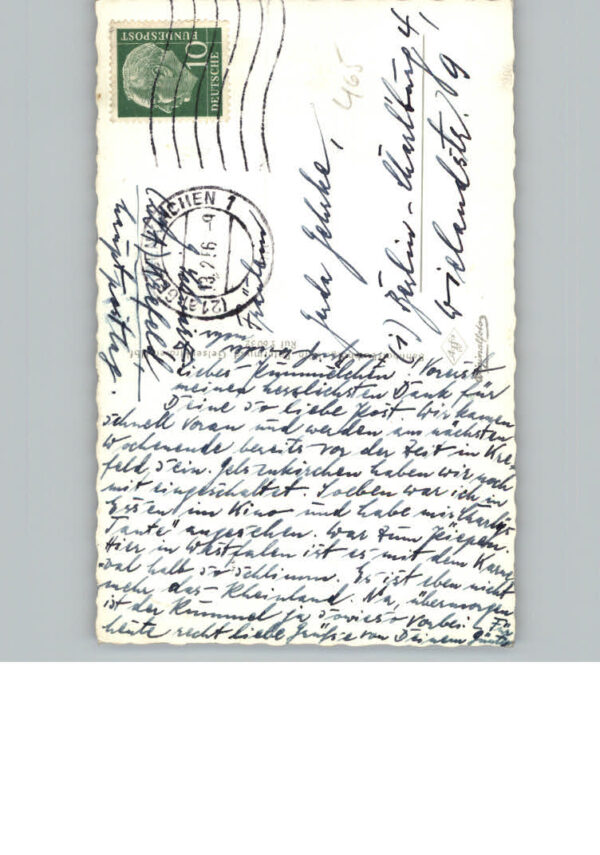 DEUTSCHE
BUNDESPOST
10
465
GELSENKIRCHEN 1
(21a)
13.2.56-9
Fräulein
Berlin-Charlbung 4,
Wielandstr. 9
(1)
hauptpostlag.
Agfa
Originalfoto
Ruf 2 60 32
liebes Pummelchen! Zuerst
meinen herzlichsten Dank für
Deine so liebe Post. Wir kamen
schnell voran und werden am nächsten
Wochenende bereits vor der Zeit in Kre-
feld sein. Gelsenkirchen haben wir noch
mit eingeschaltet. Soeben war ich in
Essen im Kino und habe mir "Charleys
Tante" angesehen. War zum Piepen.
Hier in Westfalen ist es mit dem Karne-
val halb so schlimm. Es ist eben nicht
mehr das Rheinland. Na, übermorgen
ist der Rummel ja sowieso vorbei. Für
heute recht liebe Grüße von Deinem Günter